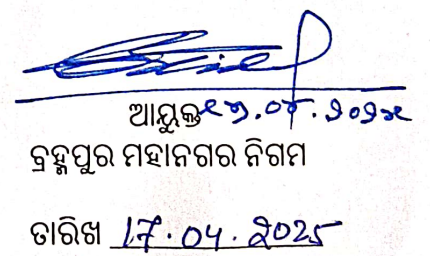 ଆୟୁକ୍ତ ୧୭.୦୪.୨୦୨୫
ବ୍ରହ୍ମପୁର ମହାନଗର ନିଗମ
ତାରିଖ 17.04.2025